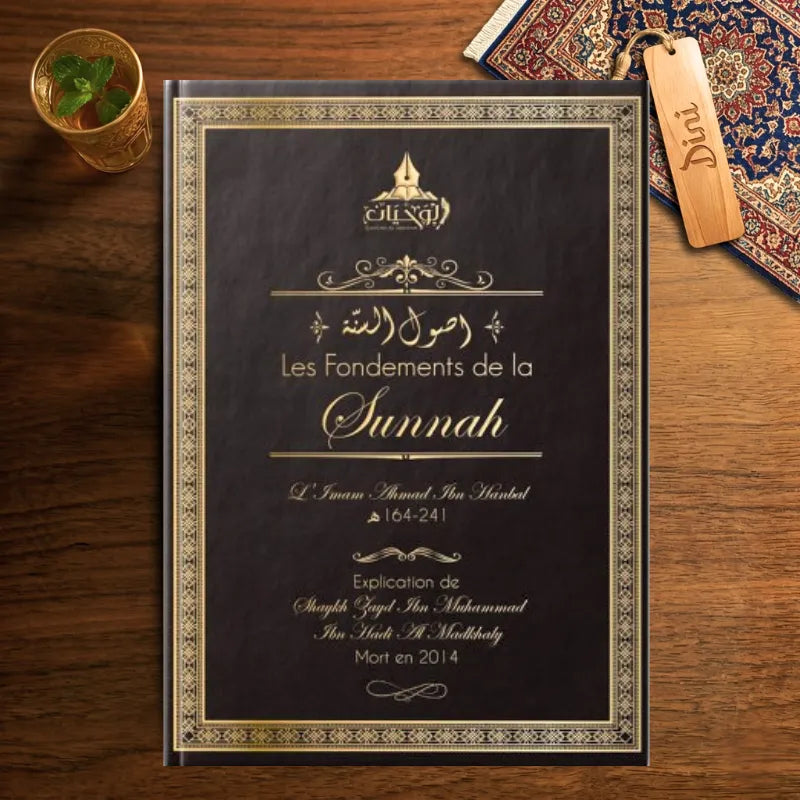 لوحيات
Dini
اصول السنّة
Les Fondements de la
Sunnah
L'Imam Ahmad Ibn Hanbal
ﻫ 164-241
Explication de
Shaykh Zayd Ibn Muhammad
Ibn Hâdi Al Madkhaly
Mort en 2014